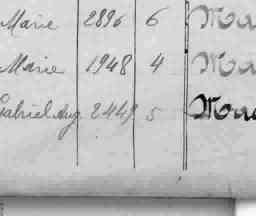 Marie 2896 6 Ma
Marie 1948 4 Ma
Gabriel Aug. 2449 5 Mac